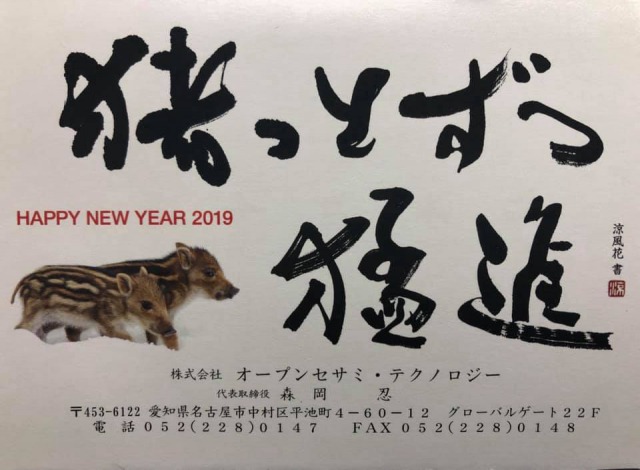 猪っとずつ
猛進
HAPPY NEW YEAR 2019
涼風花 書
株式会社 オープンセサミ・テクノロジー
代表取締役 森岡 忍
〒453-6122 愛知県名古屋市中村区平池町4－60－12 グローバルゲート22F
電話 052(228)0147 FAX 052(228)0148